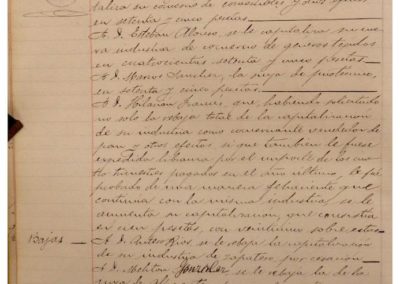 en setenta y cinco pesetas.
A D. Esteban Alonso, se le capitaliza su nueva
industria de comercio de generos tejidos
en cuatrocientas setenta y cinco pesetas.
A D. Marcos Sanchez, la suya de
en setenta y cinco pesetas.
A D. Hilarión Francés, que, habiendo solicitado
no solo la rebaja total de la capitalizacion
de su industria como comerciante vendedor de
pan y otros efectos, si que tambien le fuese
expedida libranza por el importe de los cuatro
trimestres pagados en el año ultimo, le fué
probado de una manera fehaciente que
continua con la misma industria, se le
aumenta su capitalizacion, que consistia
en cien pesetas, con veinticinco sobre estas.
Bajas
A D. Rios se le rebaja la capitalizacion
de su industria de zapatero por cesacion.
A D. Meliton Gonzalez se le rebaja la de la